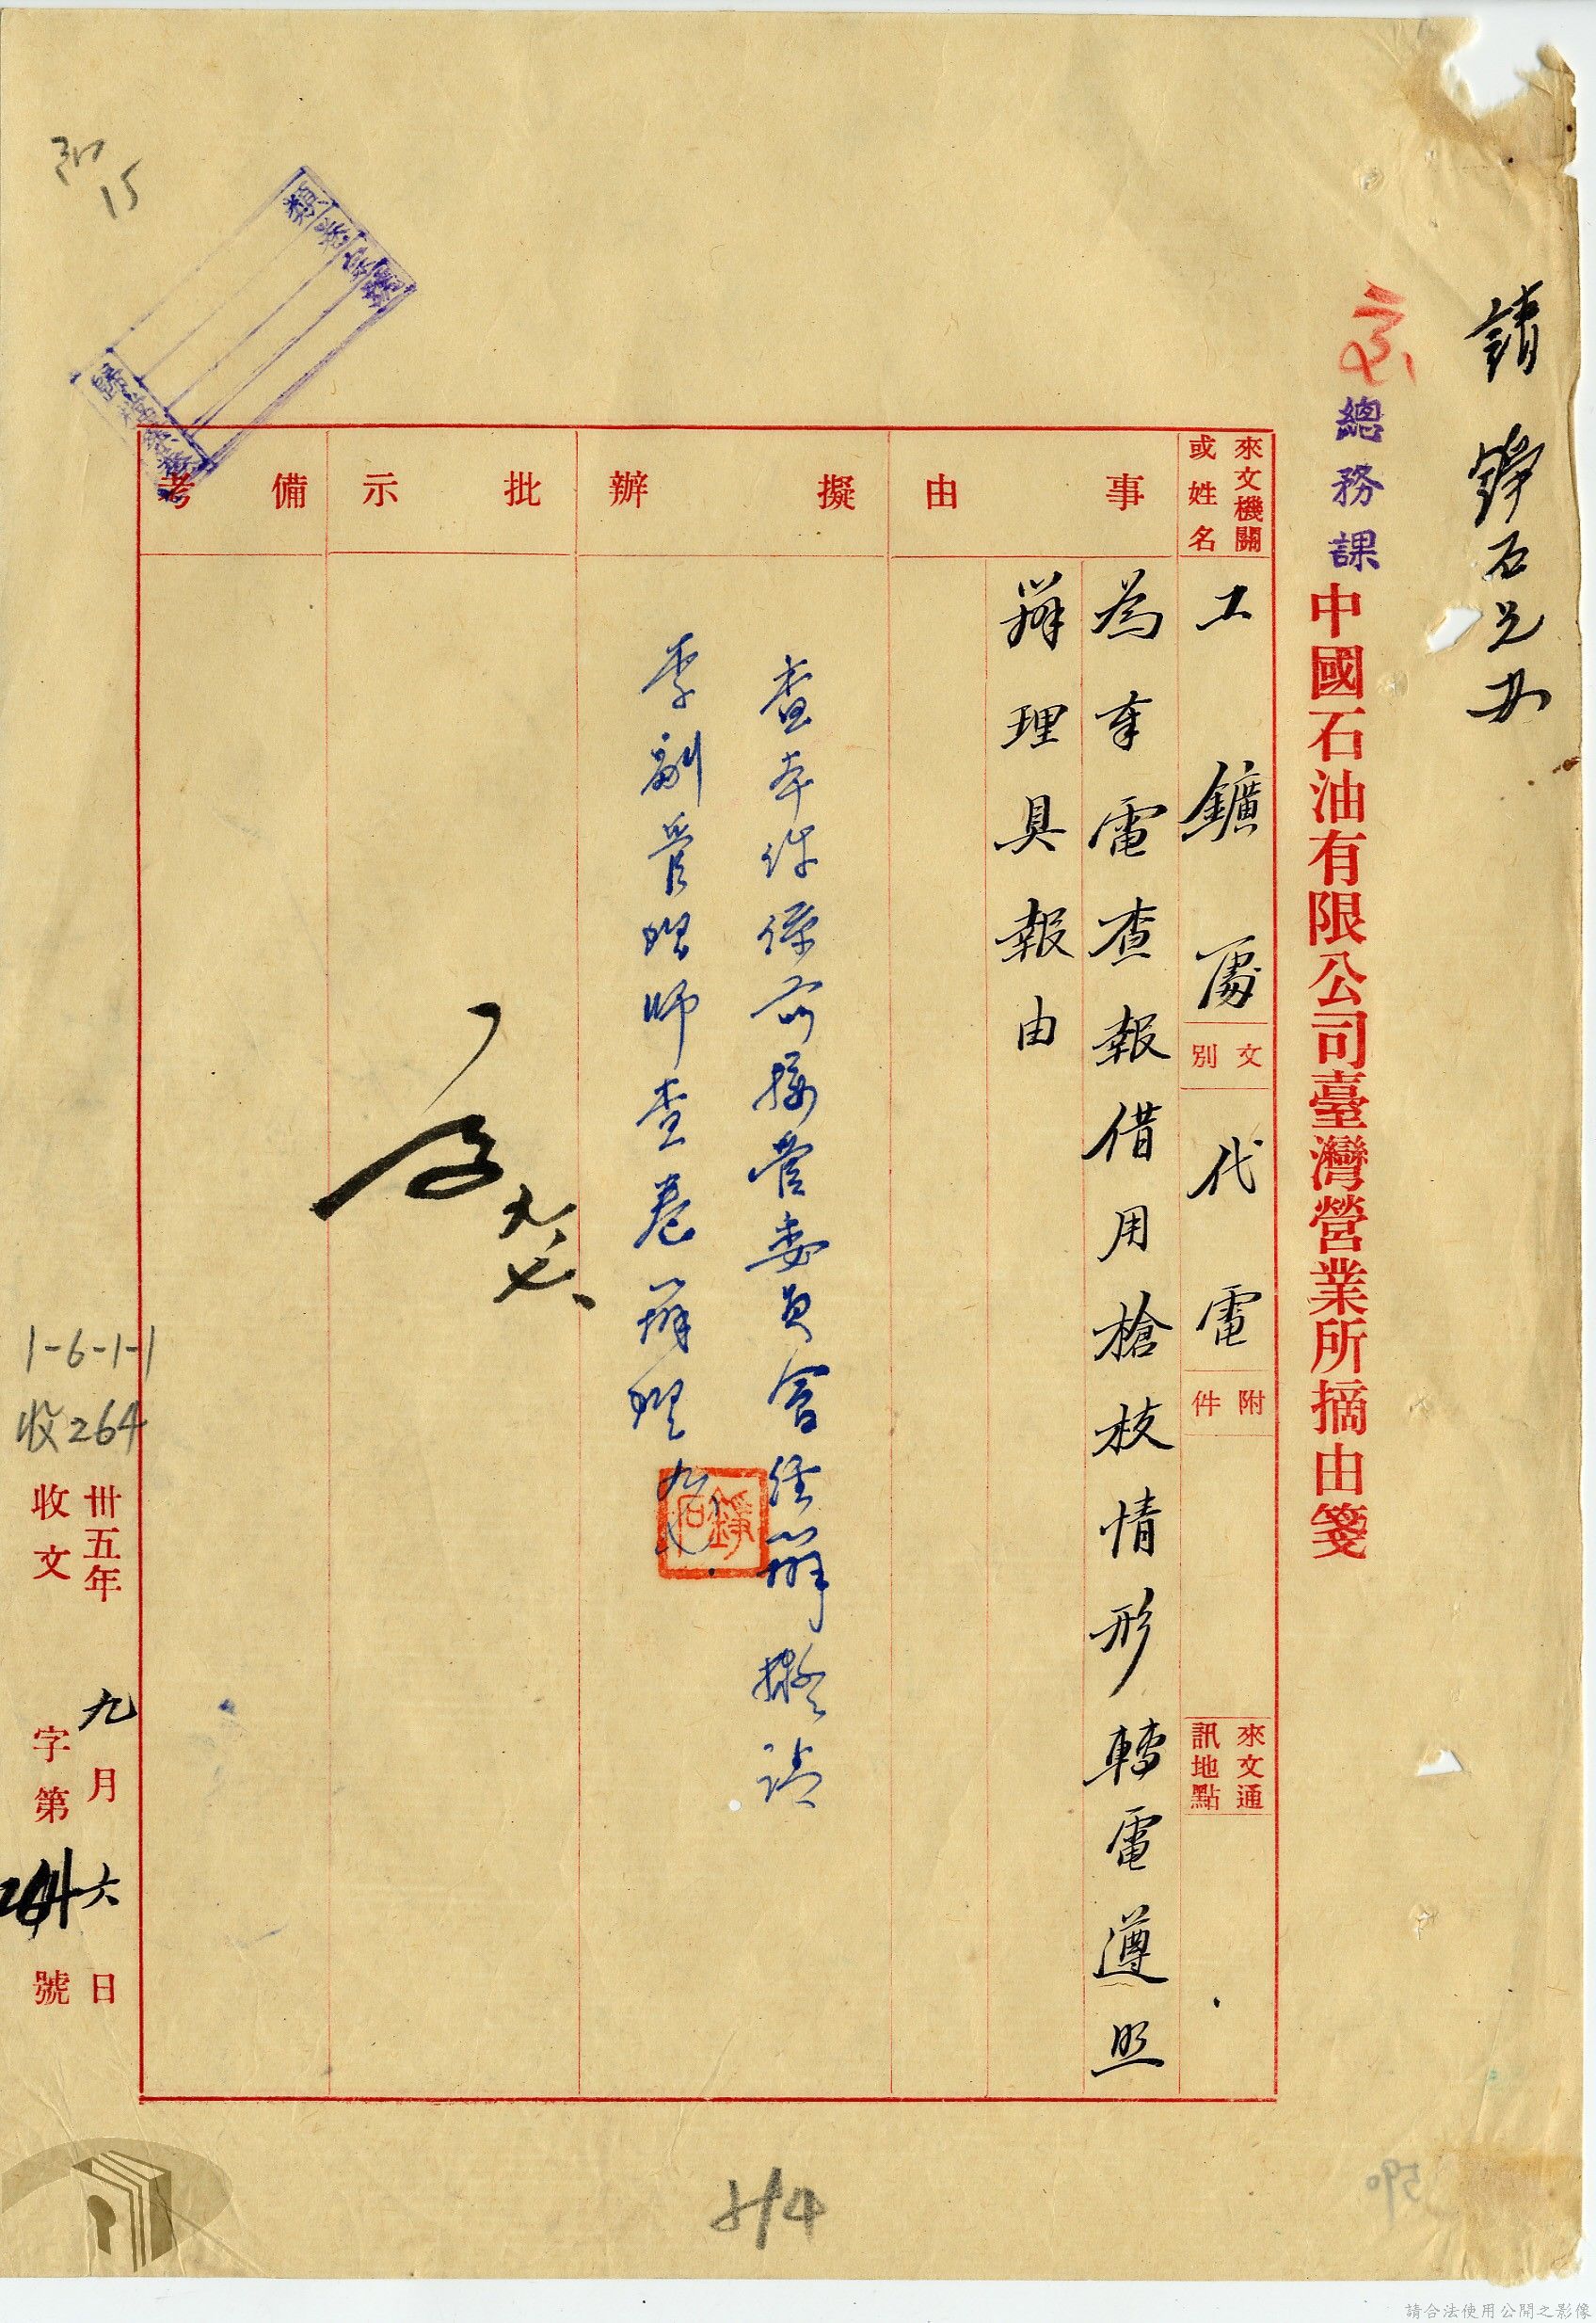 請錚石兄办
總務課
中國石油有限公司臺灣營業所摘由箋
來文機關
或姓名
工鑛處
文別
代電
附件
來文通
訊地點
事由
為奉電查報借用槍枝情形轉電遵照
辦理具報由
擬辦
查本件係前接管委員會經辦擬請
李副管理師查卷辦理
錚石
批示
九、七、
備考
卅五年九月六日
收文字第264號
1-6-1-1
收264
15
請合法使用公開之影像